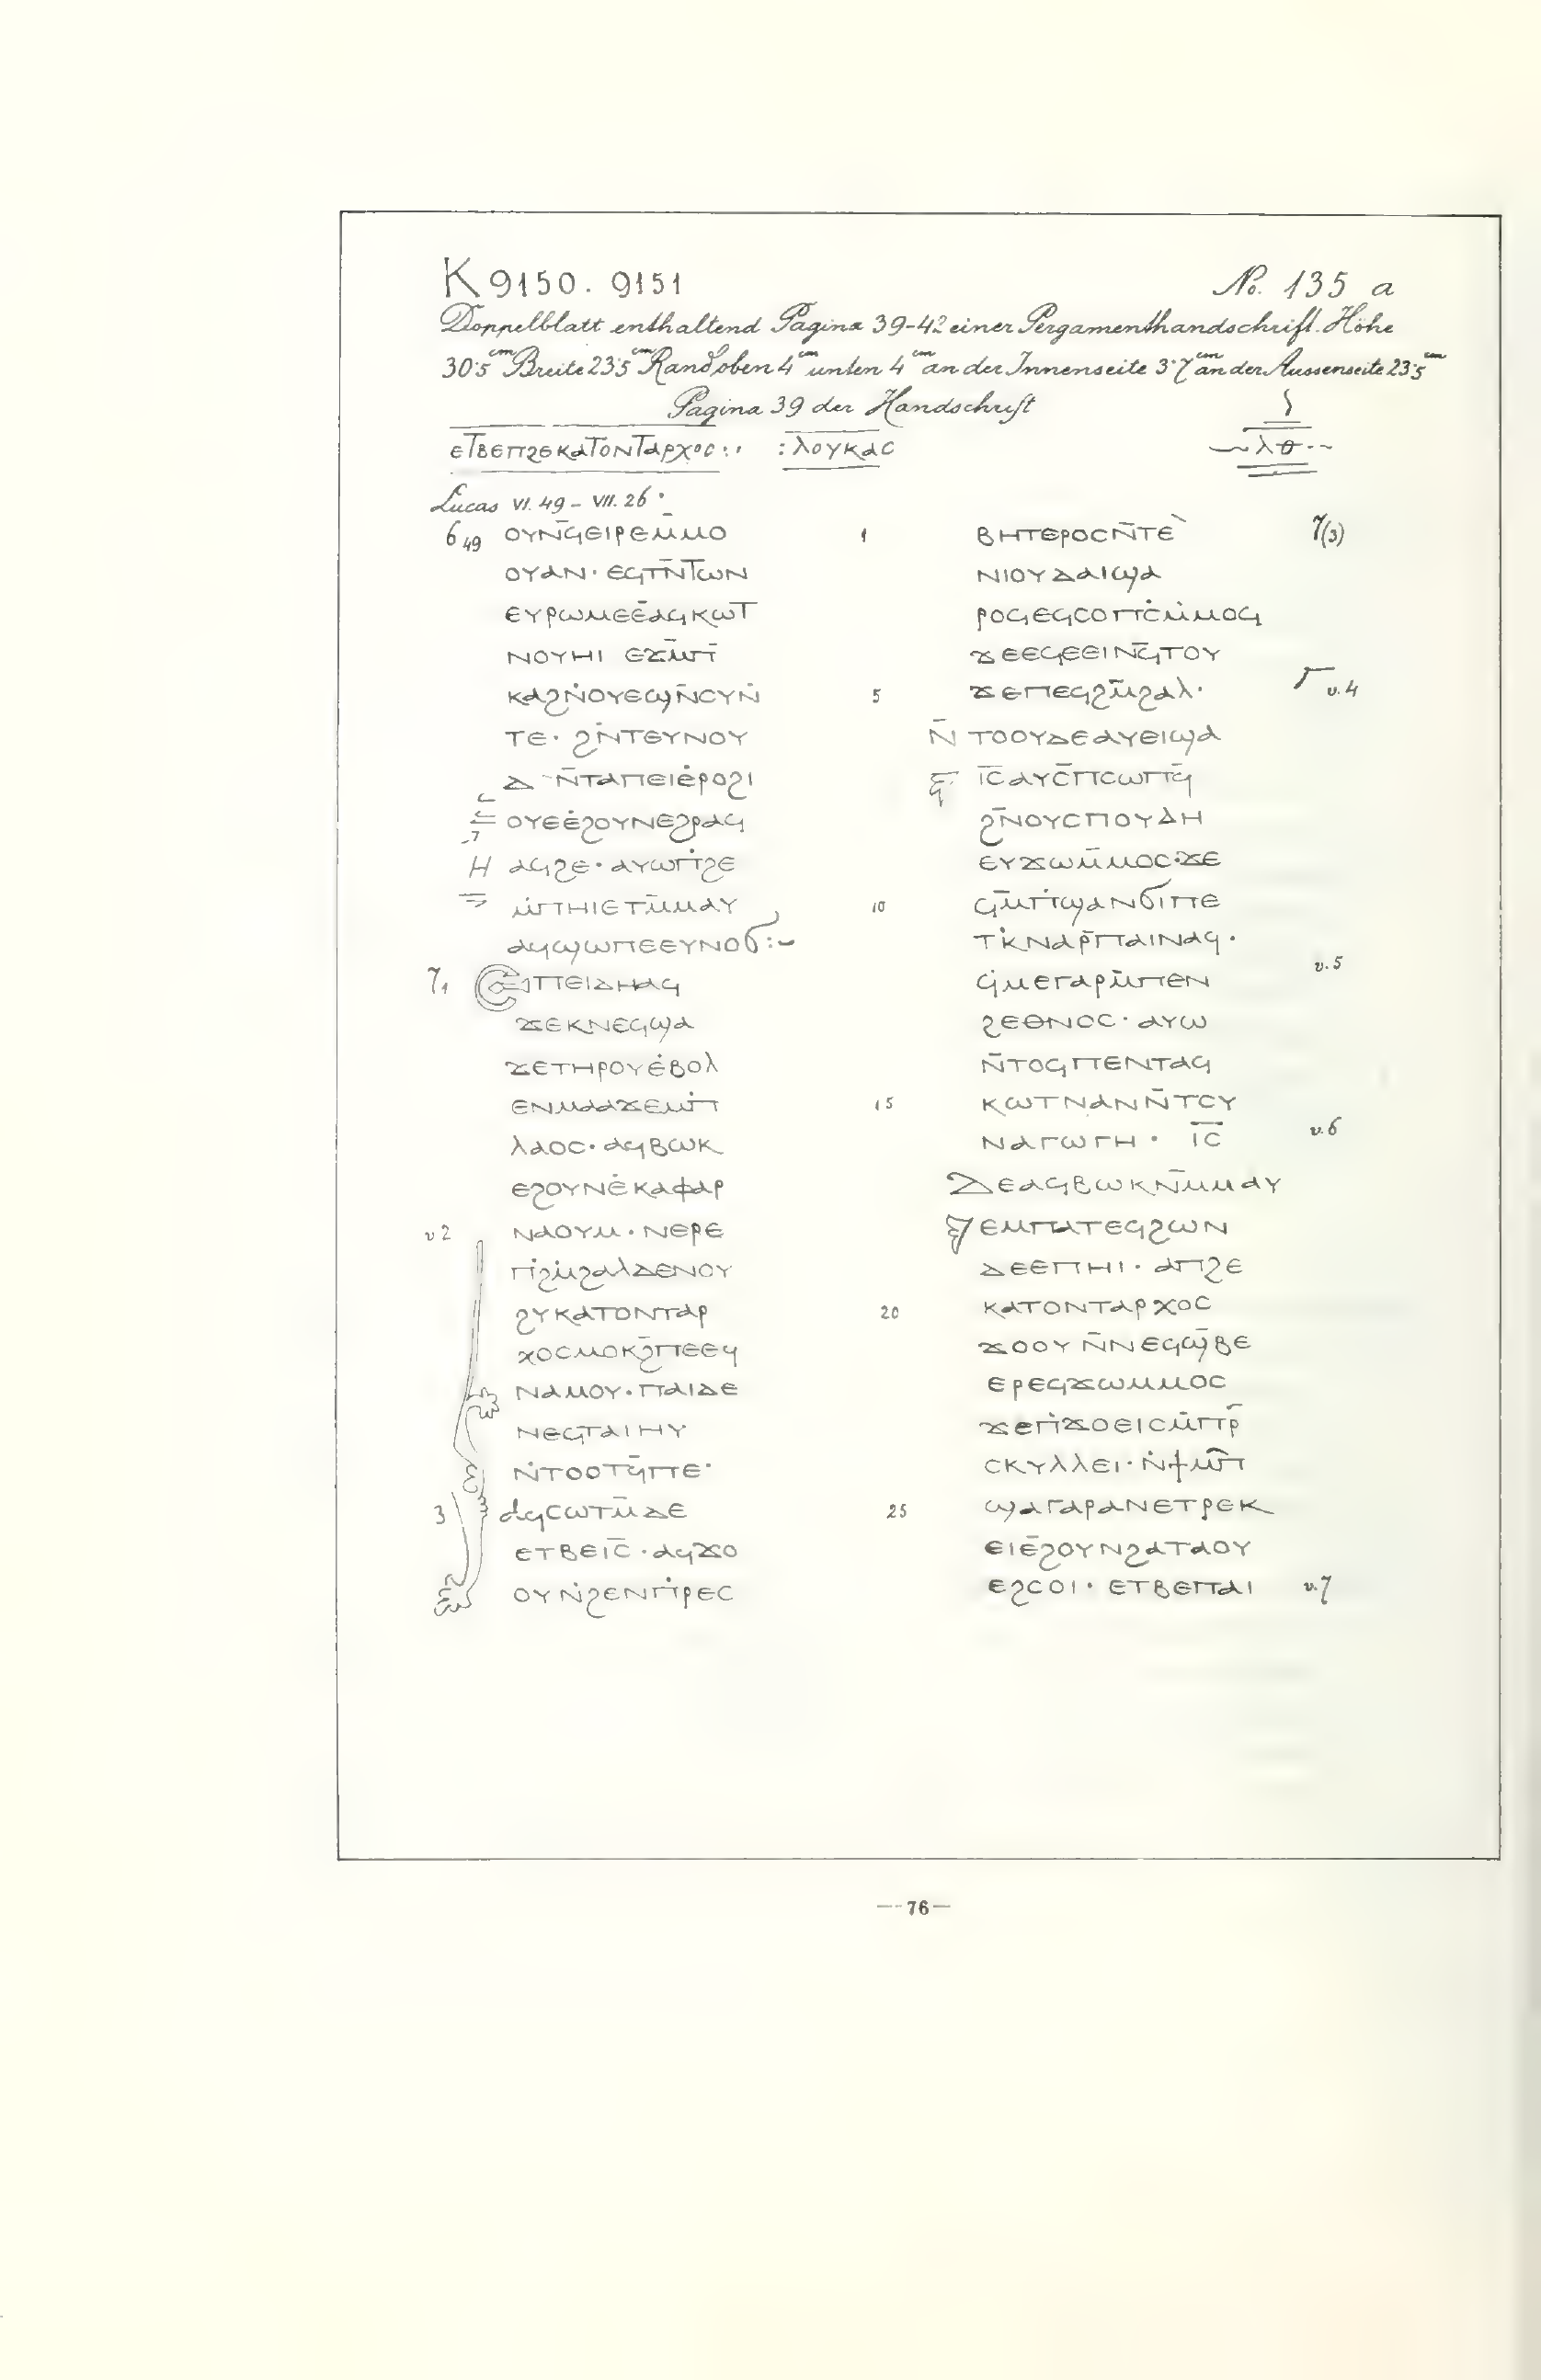 K 9150. 9151
No. 135 a
Doppelblatt enthaltend Pagina 39-42 einer Pergamenthandschrift. Höhe
30·5 cm Breite 23·5 cm Rand oben 4 cm unten 4 cm an der Innenseite 3·7 cm an der Aussenseite 23·5 cm
Pagina 39 der Handschrift
ⲉⲧⲃⲉⲡϩⲉⲕⲁⲧⲟⲛⲧⲁⲣⲭⲟⲥ : ⲗⲟⲩⲕⲁⲥ
ⲗⲑ
Lucas VI. 49 – VII. 26
6 49 ⲟⲩⲛ̄ϥⲉⲓⲣⲉⲙ̄ⲙⲟ
ⲟⲩⲁⲛ· ⲉϥⲧⲛ̄ⲧⲱⲛ
ⲉⲩⲣⲱⲙⲉⲉ̄ⲁϥⲕⲱⲧ
ⲛⲟⲩⲏⲓ ⲉϫⲙ̄ⲡ
ⲕⲁϩⲛ̇ⲟⲩⲉϣⲛ̄ⲥⲛ̇
ⲧⲉ· ϩⲛ̇ⲧⲉⲩⲛⲟⲩ
ⲇ ⲛ̄ⲧⲁⲡⲉⲓⲉ̇ⲣⲟϩⲓ
ⲟⲩⲉⲉ̇ϩⲟⲩⲛⲉϩⲣⲁϥ
ⲁϥϩⲉ· ⲁⲩⲱⲡ̇ϩⲉ
ⲙ̇ⲡⲏⲓⲉⲧⲙ̄ⲙⲁⲩ
ⲁϥϣⲱⲡⲉⲉⲩⲛⲟϭ:~
7 1 ⲉⲡⲉⲓⲇⲏⲁϥ
ϫⲉⲕⲛⲉϥϣⲁ
ϫⲉⲧⲏⲣⲟⲩⲉ̇ⲃⲟⲗ
ⲉⲛⲙⲁⲁϫⲉⲙ̇ⲡ
ⲗⲁⲟⲥ· ⲁϥⲃⲱⲕ
ⲉϩⲟⲩⲛⲉ̇ⲕⲁⲫⲁⲣ
v 2 ⲛⲁⲟⲩⲙ· ⲛⲉⲣⲉ
ⲡ̇ϩⲙ̇ϩⲁⲗⲇⲉⲛⲟⲩ
ϩⲩⲕⲁⲧⲟⲛⲧⲁⲣ
ⲭⲟⲥⲙⲟⲕϩ̄ⲡⲉⲉϥ
ⲛⲁⲙⲟⲩ· ⲡⲁⲓⲇⲉ
ⲛⲉϥⲧⲁⲓⲏⲩ
ⲛ̇ⲧⲟⲟⲧϥ̄ⲡⲉ·
3 ⲁϥⲥⲱⲧⲙ̄ⲇⲉ
ⲉⲧⲃⲉⲓ̄ⲥ̄· ⲁϥϫⲟ
ⲟⲩⲛ̇ϩⲉⲛⲡ̇ⲣⲉⲥ
1 ⲃⲏⲧⲉⲣⲟⲥⲛ̄ⲧⲉ̀ 7(3)
ⲛⲓⲟⲩⲇⲁⲓϣⲁ
ⲣⲟϥⲉϥⲥⲟⲡⲥ̇ⲙ̇ⲙⲟϥ
ϫⲉⲉϥⲉⲉⲓⲛϥ̄ⲧⲟⲩ
5 ϫⲉⲡⲉϥϩⲙ̄ϩⲁⲗ· v. 4
ⲛ̄ⲧⲟⲟⲩⲇⲉⲁⲩⲉⲓϣⲁ
ⲓ̄ⲥ̄ⲁⲩⲥ̄ⲡⲥⲱⲡϥ̄
ϩⲛ̄ⲟⲩⲥⲡⲟⲩⲇⲏ
ⲉⲩϫⲱⲙ̄ⲙⲟⲥ·ϫⲉ
10 ϥⲙ̄ⲡ̇ϣⲁⲛϭⲓⲡⲉ
ⲧ̇ⲕⲛⲁⲣ̄ⲡⲁⲓⲛⲁϥ·
ϥ̇ⲙⲉⲅⲁⲣⲙ̄ⲡⲉⲛ v. 5
ϩⲉⲑⲛⲟⲥ· ⲁⲩⲱ
ⲛ̄ⲧⲟϥⲡⲉⲛⲧⲁϥ
15 ⲕⲱⲧⲛⲁⲛⲛ̄ⲧⲥⲩ
ⲛⲁⲅⲱⲅⲏ· ⲓ̄ⲥ̄ v. 6
ⲇⲉⲁϥⲃⲱⲕⲛ̄ⲙⲙⲁⲩ
ⲉⲙⲡⲁⲧⲉϥϩⲱⲛ
ⲇⲉⲉⲡⲏⲓ· ⲁⲡϩⲉ
20 ⲕⲁⲧⲟⲛⲧⲁⲣⲭⲟⲥ
ϫⲟⲟⲩⲛ̄ⲛⲉϥϣ̄ⲃⲉ
ⲉⲣⲉϥϫⲱⲙⲙⲟⲥ
ϫⲉⲡ̇ϫⲟⲉⲓⲥⲙ̄ⲡⲣ̄
ⲥⲕⲩⲗⲗⲉⲓ· ⲛ̇ϯⲙ̄ⲡ
25 ϣⲁⲅⲁⲣⲁⲛⲉⲧⲣⲉⲕ
ⲉⲓⲉ̄ϩⲟⲩⲛϩⲁⲧⲁⲟⲩ
ⲉϩⲥⲟⲓ· ⲉⲧⲃⲉⲡⲁⲓ v. 7
— 76 —